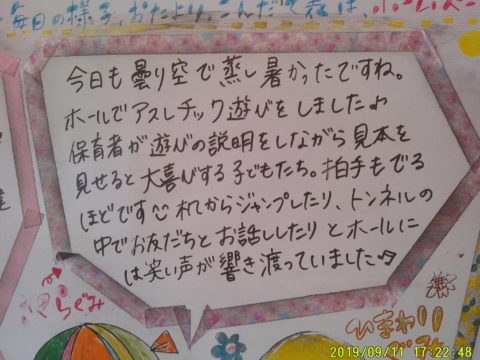 毎日の様子、おたより、こんだて表は、ホームペー
今日も曇り空で蒸し暑かったですね。
ホールでアスレチック遊びをしました♪
保育者が遊びの説明をしながら見本を
見せると大喜びする子どもたち。拍手もでる
ほどです 机からジャンプしたり、トンネルの
中でお友だちとお話ししたりとホールに
は笑い声が響き渡っていました
さくらぐみ
ひまわり
2019/09/11 17:22:48